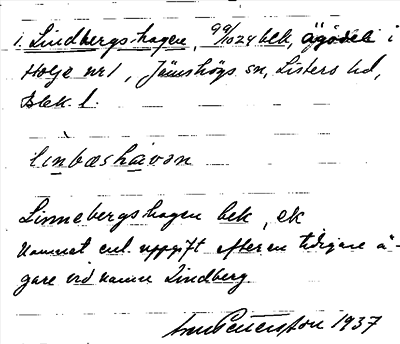 1. Lindbergshagen, 99/1024 bek, ägodel i
Holje nr 1, Jämshögs sn, Listers hd,
Blek. l.
linbæshavən
Linnebergshagen bek, ek
Namnet enl. uppgift efter en tidigare ä-
gare vid namn Lindberg
1937